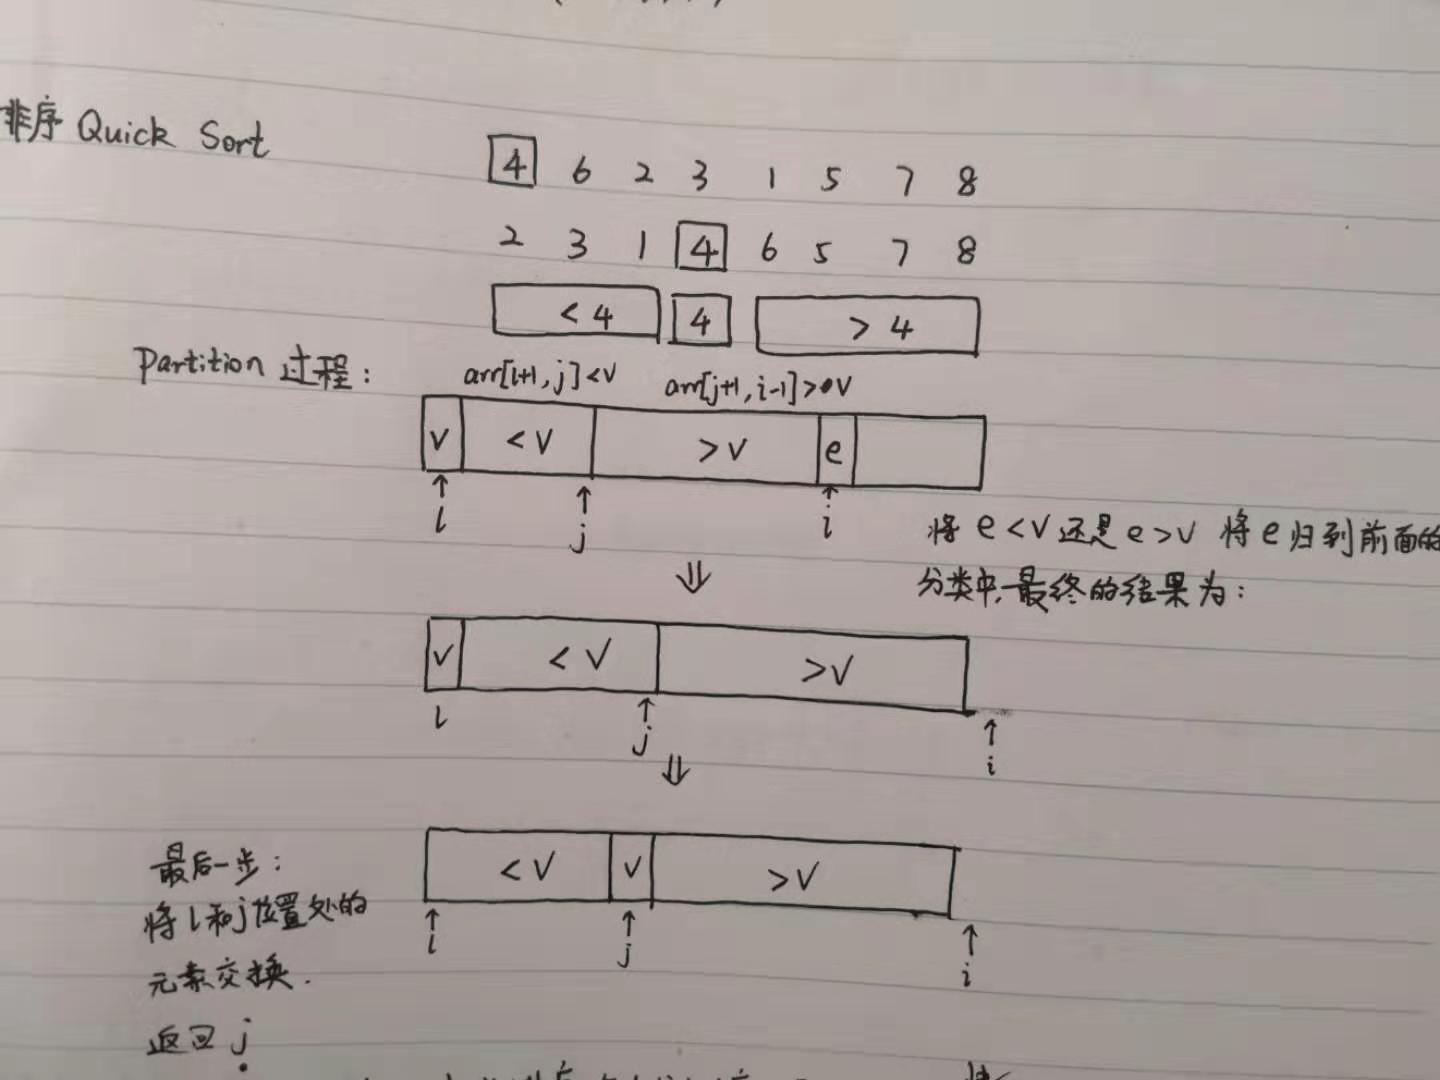 排序 Quick Sort
4 6 2 3 1 5 7 8
2 3 1 4 6 5 7 8
< 4 4 > 4
Partition 过程:
arr[l+1, j]<v arr[j+1, i-1]>v
v <v >v e
l j i
将 e<v 还是 e>v 将 e 归到前面的
分类中,最终的结果为:
⇓
v <v >v
l j i
⇓
<v v >v
l j i
最后一步:
将 l 和 j 位置处的
元素交换.
返回 j